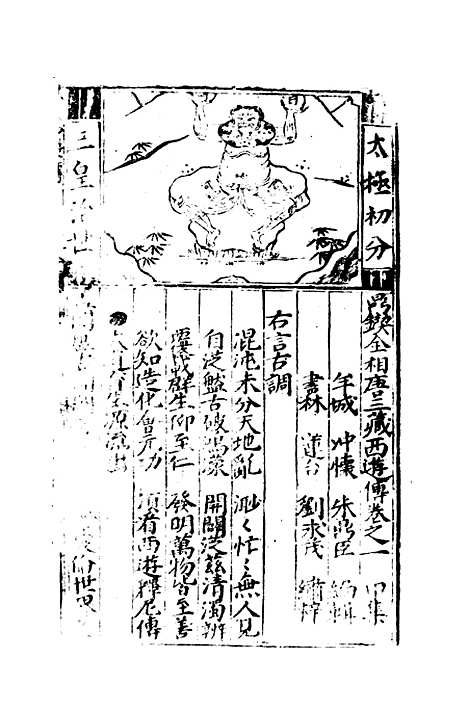 太極初分
鼎鍥全相唐三藏西遊傳卷之一 甲集
羊城 冲懷 朱鼎臣 編輯
書林 蓮台 劉求茂 繡梓
右言古調
混沌未分天地亂 渺〻忙〻無人見
自從盤古破鴻濛 開闢從茲清濁辨
覆載群生仰至仁 發明萬物皆至善
欲知造化會元功 須看西遊釋尼傳
三皇治世